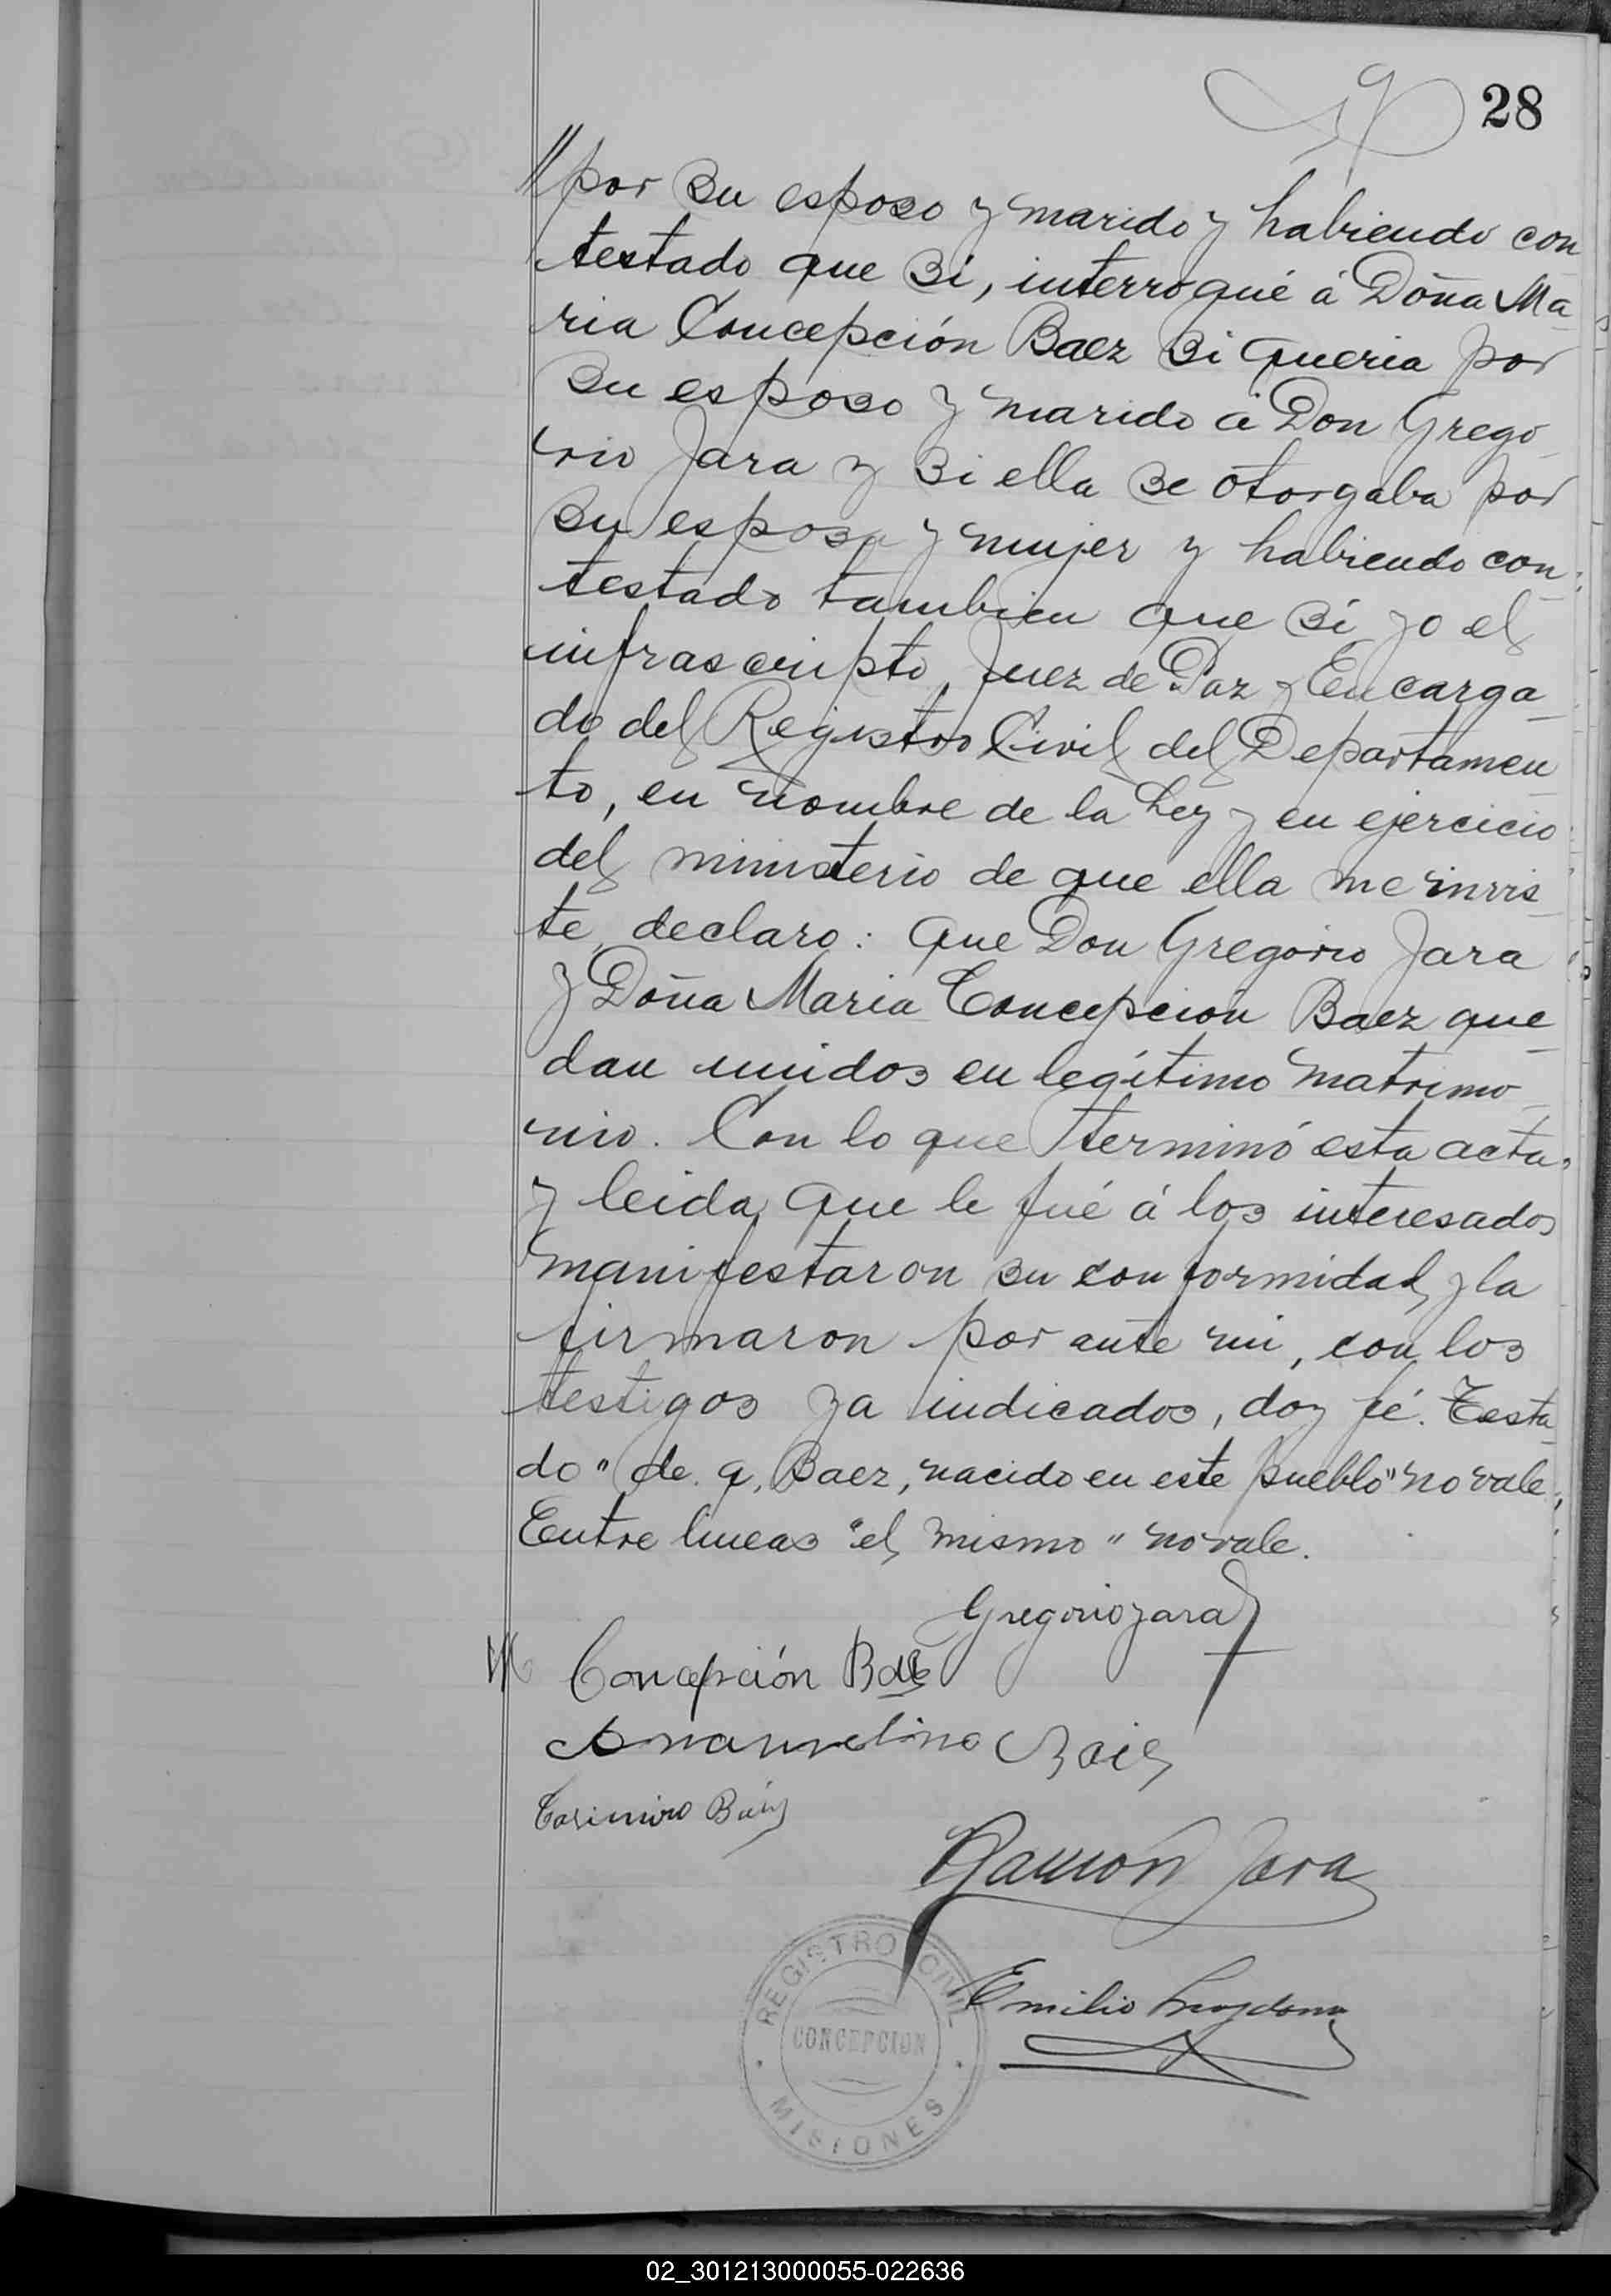 28
"por su esposo y marido y habiendo con
testado que si, interrogué á Doña Ma
ria Concepción Baez si queria por
su esposo y marido á Don Grego
rio Jara y si ella se otorgaba por
su esposa y mujer y habiendo con
testado tambien que si yo el
infrascripto Juez de Paz y Encarga
do del Registro Civil del Departamen
to, en nombre de la Ley y en ejercicio
del ministerio de que ella me invis
te, declaro: que Don Gregorio Jara
y Doña Maria Concepción Baez que
dan unidos en legítimo matrimo
nio. Con lo que terminó esta acta,
y leida que le fué á los interesados
manifestaron su conformidad y la
firmaron por ante mi, con los
testigos ya indicados, doy fé. Testa
do "de. q, Baez, nacido en este pueblo" no vale,
Entre lineas "el mismo" no vale.
Gregorio Jara
M Concepción Baez
Casimiro Báez
Ramón Jara
Emilio
REGISTRO CIVIL
CONCEPCION
MISIONES
02_301213000055-022636